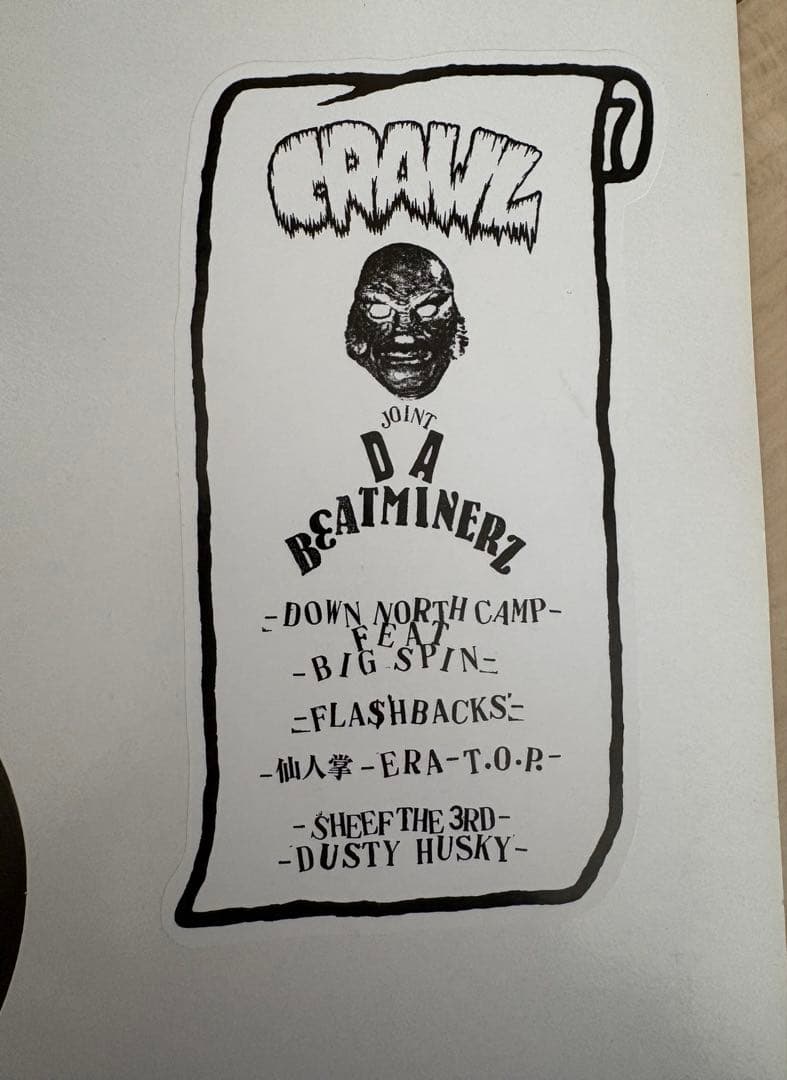 CRAWL
7
JOINT
DA
BEATMINERZ
-DOWN NORTH CAMP-
FEAT
-BIG SPIN-
-FLA$HBACKS-
-仙人掌-ERA-T.O.P.-
-$HEEF THE 3RD-
-DUSTY HUSKY-